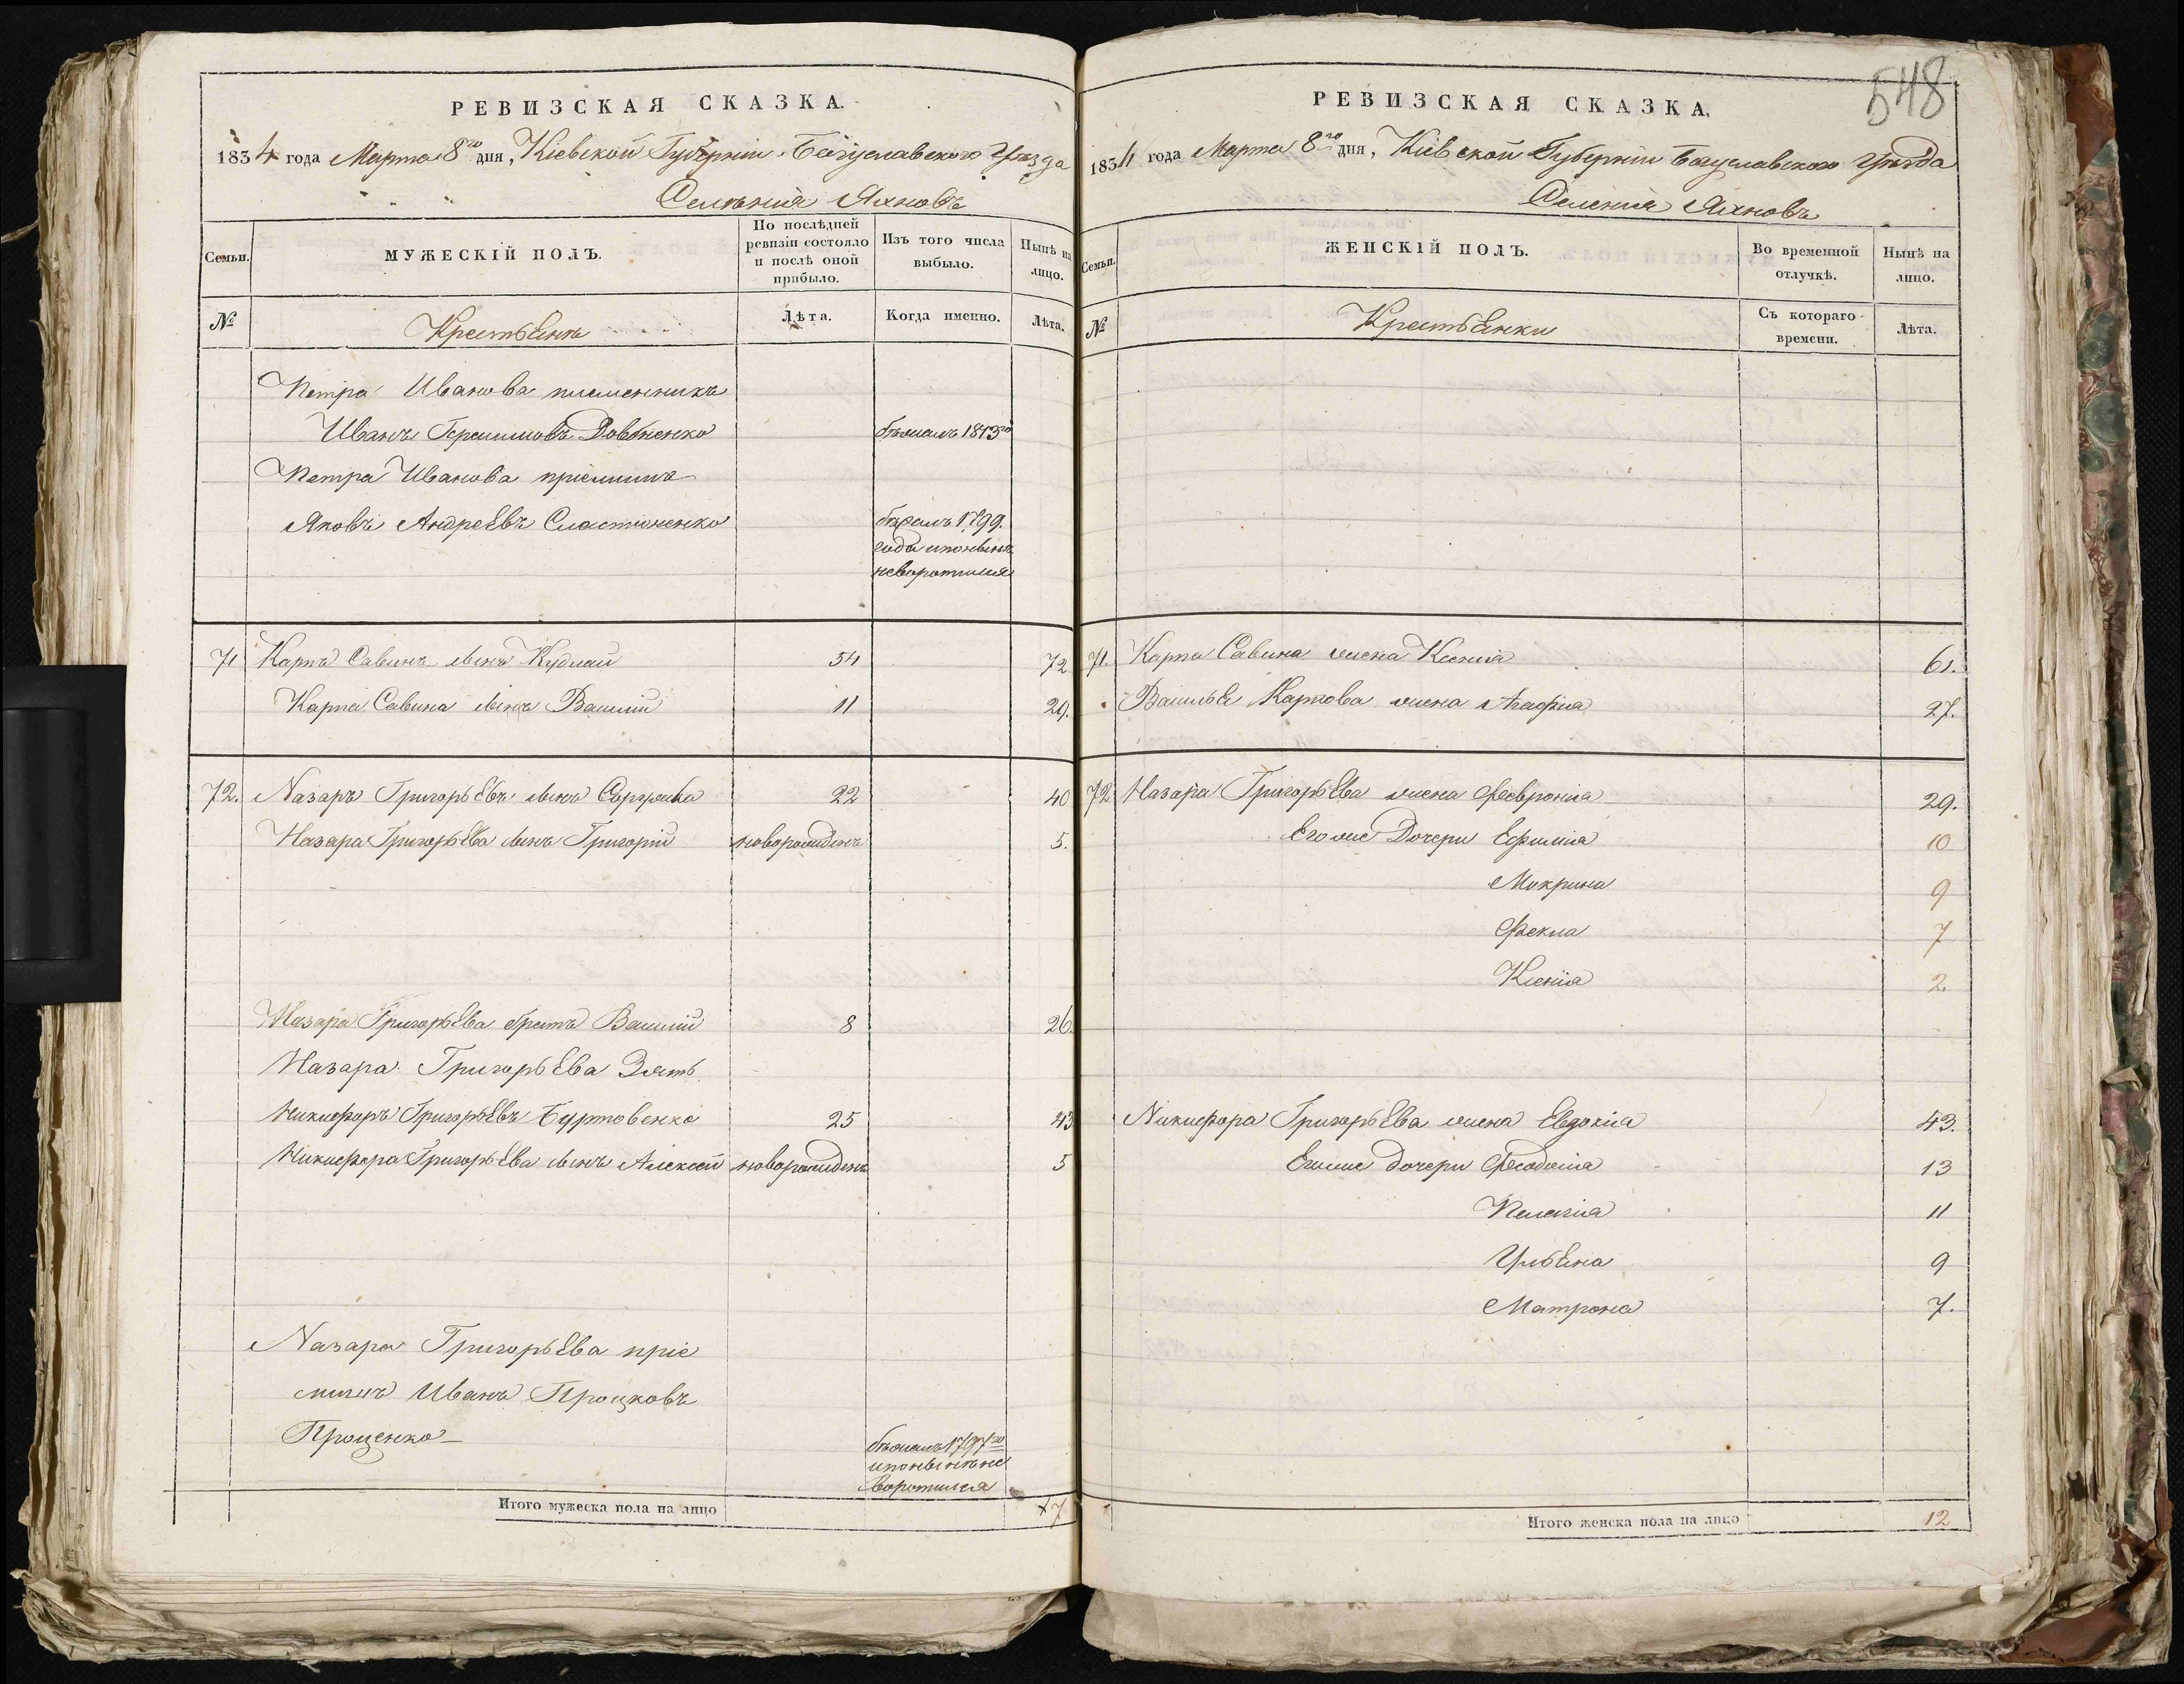 РЕВИЗСКАЯ СКАЗКА.
1834 года Марта 8го дня, Кіевской Губерніи Богуславского Уѣзда
Селенія Яхновъ
Семьи.
МУЖЕСКІЙ ПОЛЪ.
По послѣдней ревизіи состояло и послѣ оной прибыло.
Изъ того числа выбыло.
Нынѣ на лицо.
№
Крестьяне
Лѣта.
Когда именно.
Лѣта.
Петра Иванова племенникъ
Иванъ Довбненко
бѣжалъ 1813го
Петра Иванова пріемишъ
Яковъ Андреевъ Сластіоненко
бѣжалъ 1799.
года инонынѣ
неворотился
71 Карпъ Савинъ сынъ Кудлай 54 72
Карпа Савина сынъ Василій 11 29.
72. Назаръ Григорьевъ сынъ 22 40
Назара Григорьева сынъ Григорій новорожденъ 5.
Назара Григорьева братъ Василій 8 26.
Назара Григорьева Зять
Никифоръ Григорьевъ Буртовенко 25 43
Никифора Григорьева сынъ Алексей новорожденъ 5
Назара Григорьева пріе
мишъ Иванъ Процковъ
Проценко
бѣжалъ 1797го
инонынѣ не
воротился
Итого мужеска пола на лицо 7
548
РЕВИЗСКАЯ СКАЗКА.
1834 года Марта 8го дня, Кіевской Губерніи Богуславского Уѣзда
Селенія Яхновъ
Семьи.
ЖЕНСКІЙ ПОЛЪ.
Во временной отлучкѣ.
Нынѣ на лицо.
№
Крестьянки
Съ котораго времени.
Лѣта.
71. Карпа Савина жена Ксенія 61.
Василья Карпова жена Агафія 27.
72 Назара Григорьева жена Февронія 29.
Его же Дочери Ефимія 10
Мокрина 9
Фекла 7
Ксенія 2.
Никифора Григорьева жена Евдокія 43.
Егоже дочери Феодосія 13
Пелагія 11
Ульяна 9
Матрона 7.
Итого женска пола на лицо 12